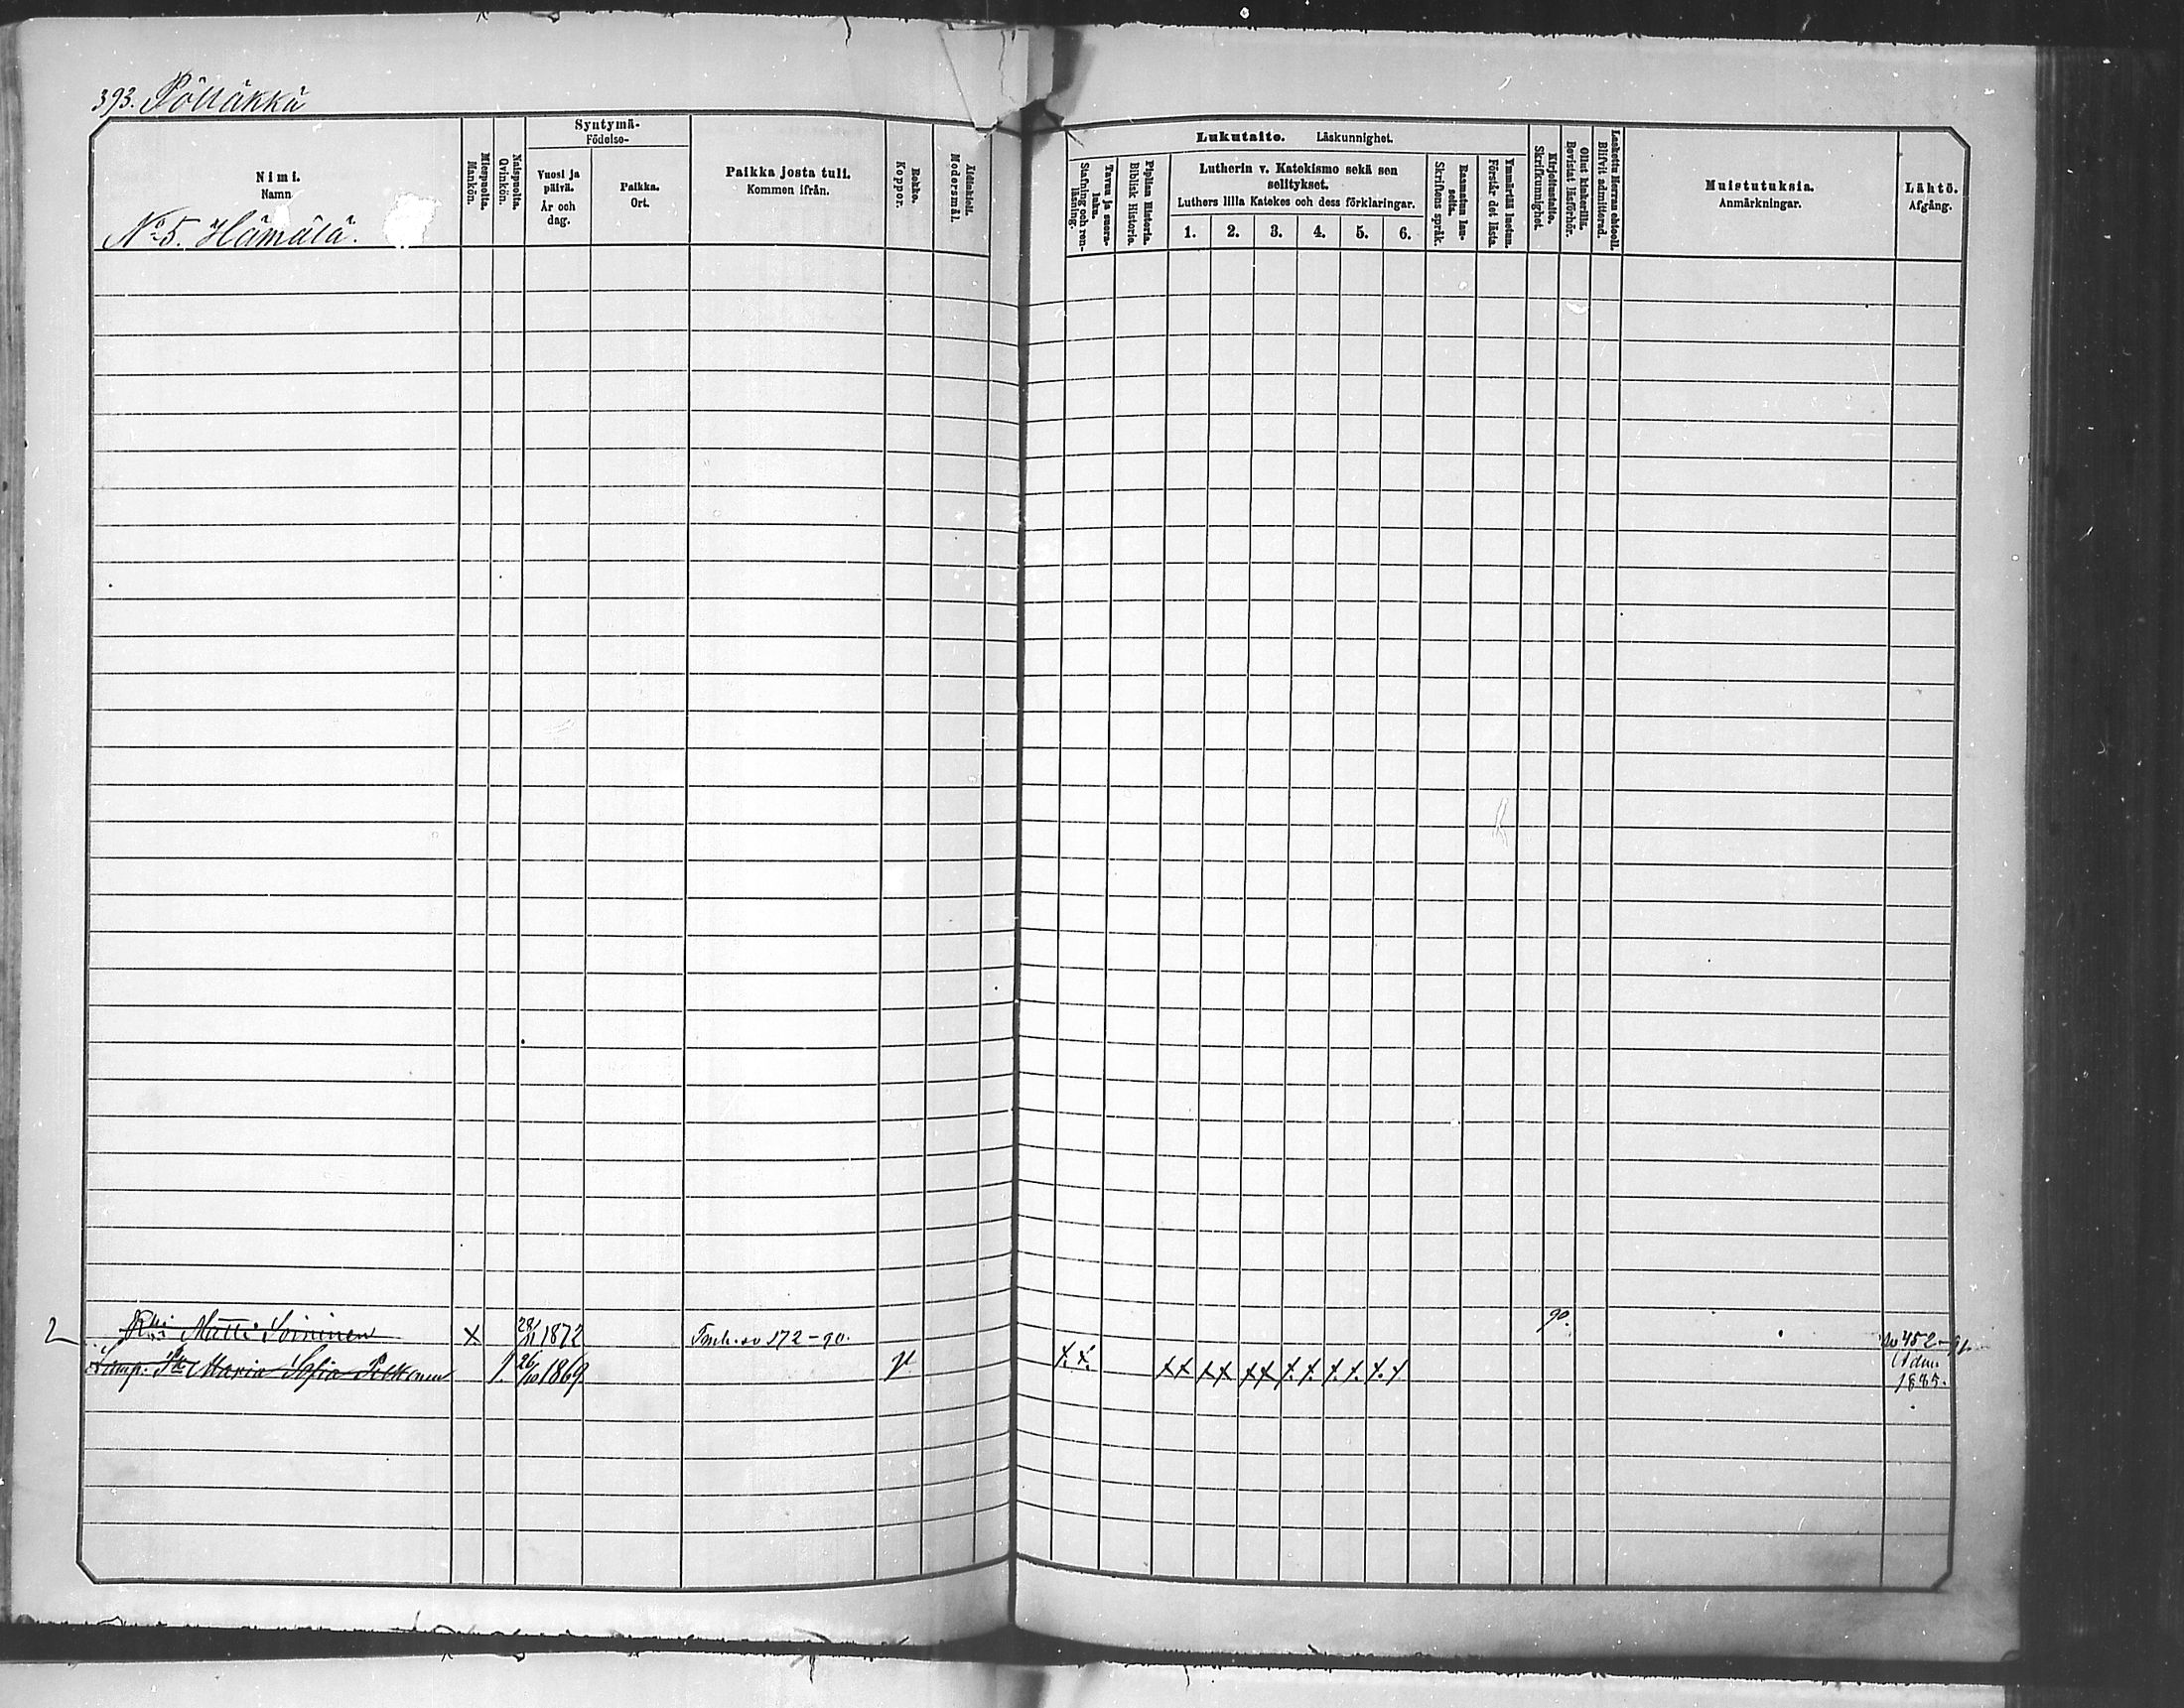 393. Pölläkkä
Nimi.
Namn
No 5. Hämälä.
Miespuolia.
Mankön.
Naispuolia.
Qvinkön.
Syntymä-
Födelse-
Vuosi ja
päivä.
År och
dag.
Paikka.
Ort.
Paikka josta tuli.
Kommen ifrån.
Rokko.
Koppor.
Äidinkieli.
Modersmål.
Lukutaito. Läskunnighet.
Tavuu ja suora-
luku.
Stafning och ren-
läsning.
Piplian Historia.
Biblisk Historie.
Lutherin v. Katekismo sekä sen
selitykset.
Luthers lilla Katekes och dess förklaringar.
1. 2. 3. 4. 5. 6.
Raamatun lau-
seita.
Skriftens språk.
Ymmärtää luetun.
Förstår det lästa.
Kirjoitustaito.
Skriftkunnighet.
Ollut kinkerillä.
Bevistat läsförhör.
Laskettu Herran ehtooll.
Blifvit admitterad.
Muistutuksia.
Anmärkningar.
Lähtö.
Afgång.
2 Matti Soininen x 28/11 1872 172-90. 90. 452-91.
Maria Sofia Pelkonen 1. 26/10 1869. x. x. x x x x x x x. x. x. x. x. x 1885.